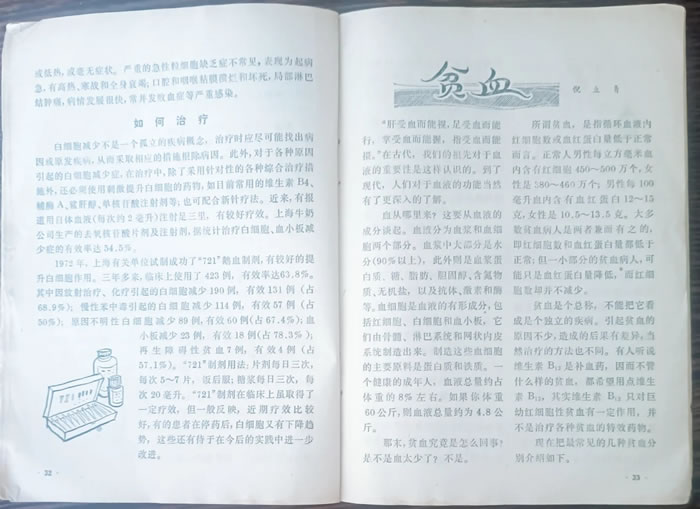 或低热，或毫无症状。严重的急性粒细胞缺乏症不常见，表现为起病
急，有高热、寒战和全身衰竭；口腔和咽喉粘膜溃烂和坏死，局部淋巴
结肿痛，病情发展很快，常并发败血症等严重感染。
如何治疗
白细胞减少不是一个孤立的疾病概念，治疗时应尽可能找出病
因或原发疾病，从而采取相应的措施祛除病因。此外，对于各种原因
引起的白细胞减少症，在治疗中，除了采用针对性的各种综合治疗措
施外，还必须使用刺激提升白细胞的药物，如目前常用的维生素B4、
辅酶A、鲨肝醇、单核苷酸注射剂等；也可配合新针疗法。近来，有报
道用自体血液(每次约2毫升)注射足三里，有较好疗效。上海牛奶
公司生产的去氧核苷酸片剂及注射剂，据统计治疗白细胞、血小板减
少症的有效率达54.5%。
1972年，上海有关单位试制成功了“721”制剂，有较好的提
升白细胞作用。三年多来，临床上使用了423例，有效率达63.8%。
其中因放射治疗、化疗引起的白细胞减少190例，有效131例(占
68.9%)；慢性苯中毒引起的白细胞减少114例，有效57例(占
50%)；原因不明性白细胞减少89例，有效60例(占67.4%)；血
小板减少23例，有效18例(占78.3%)；
再生障碍性贫血7例，有效4例(占
57.1%)。“721”制剂用法：片剂每日三次，
每次5～7片，饭后服；糖浆每日三次，每
次20毫升。“721”制剂在临床上虽取得了
一定疗效，但一般反映，近期疗效比较
好，有的患者在停药后，白细胞又有下降趋
势，这些还有待于在今后的实践中进一步
改进。
721
· 32 ·
贫血
倪立
“肝受血而能视，足受血而能
行，掌受血而能握，指受血而能
摄。”在古代，我们的祖先对于血
液的重要性是这样认识的。到了
现代，人们对于血液的功能当然
有了更深入的了解。
血从哪里来？这要从血液的
成分谈起。血液分为血浆和血细
胞两个部分。血浆中大部分是水
分(90%以上)，此外则是血浆蛋
白质、糖、脂肪、胆固醇、含氮物
质、无机盐，以及抗体、激素和酶
等。血细胞是血液的有形成分，包
括红细胞、白细胞和血小板，它
们由骨髓、淋巴系统和网状内皮
系统制造出来。制造这些血细胞
的主要原料是蛋白质和铁质。一
个健康的成年人，血液总量约占
体重的8%左右。如果你体重
60公斤，则血液总量约为4.8公
斤。
那末，贫血究竟是怎么回事？
是不是血太少了？不是。
所谓贫血，是指循环血液内
红细胞数或血红蛋白量低于正常
而言。正常人男性每立方毫米血
内含有红细胞450～500万个，女
性是380～460万个；男性每100
毫升血内含有血红蛋白12～15
克，女性是10.5～13.5克。大多
数贫血病人是两者兼而有之的，
即红细胞数和血红蛋白量都低于
正常；但一小部分的贫血病人，可
能只是血红蛋白量降低，而红细
胞数却并不减少。
贫血是个总称，不能把它看
成是个独立的疾病。引起贫血的
原因不少，造成的后果有差异，当
然治疗的方法也不同。有人听说
维生素B₁₂是补血药，因而不管
什么样的贫血，都希望用点维生
素B₁₂，其实维生素B₁₂只对巨
幼红细胞性贫血有一定作用，并
不是治疗各种贫血的特效药物。
现在把最常见的几种贫血分
别介绍如下。
· 33 ·